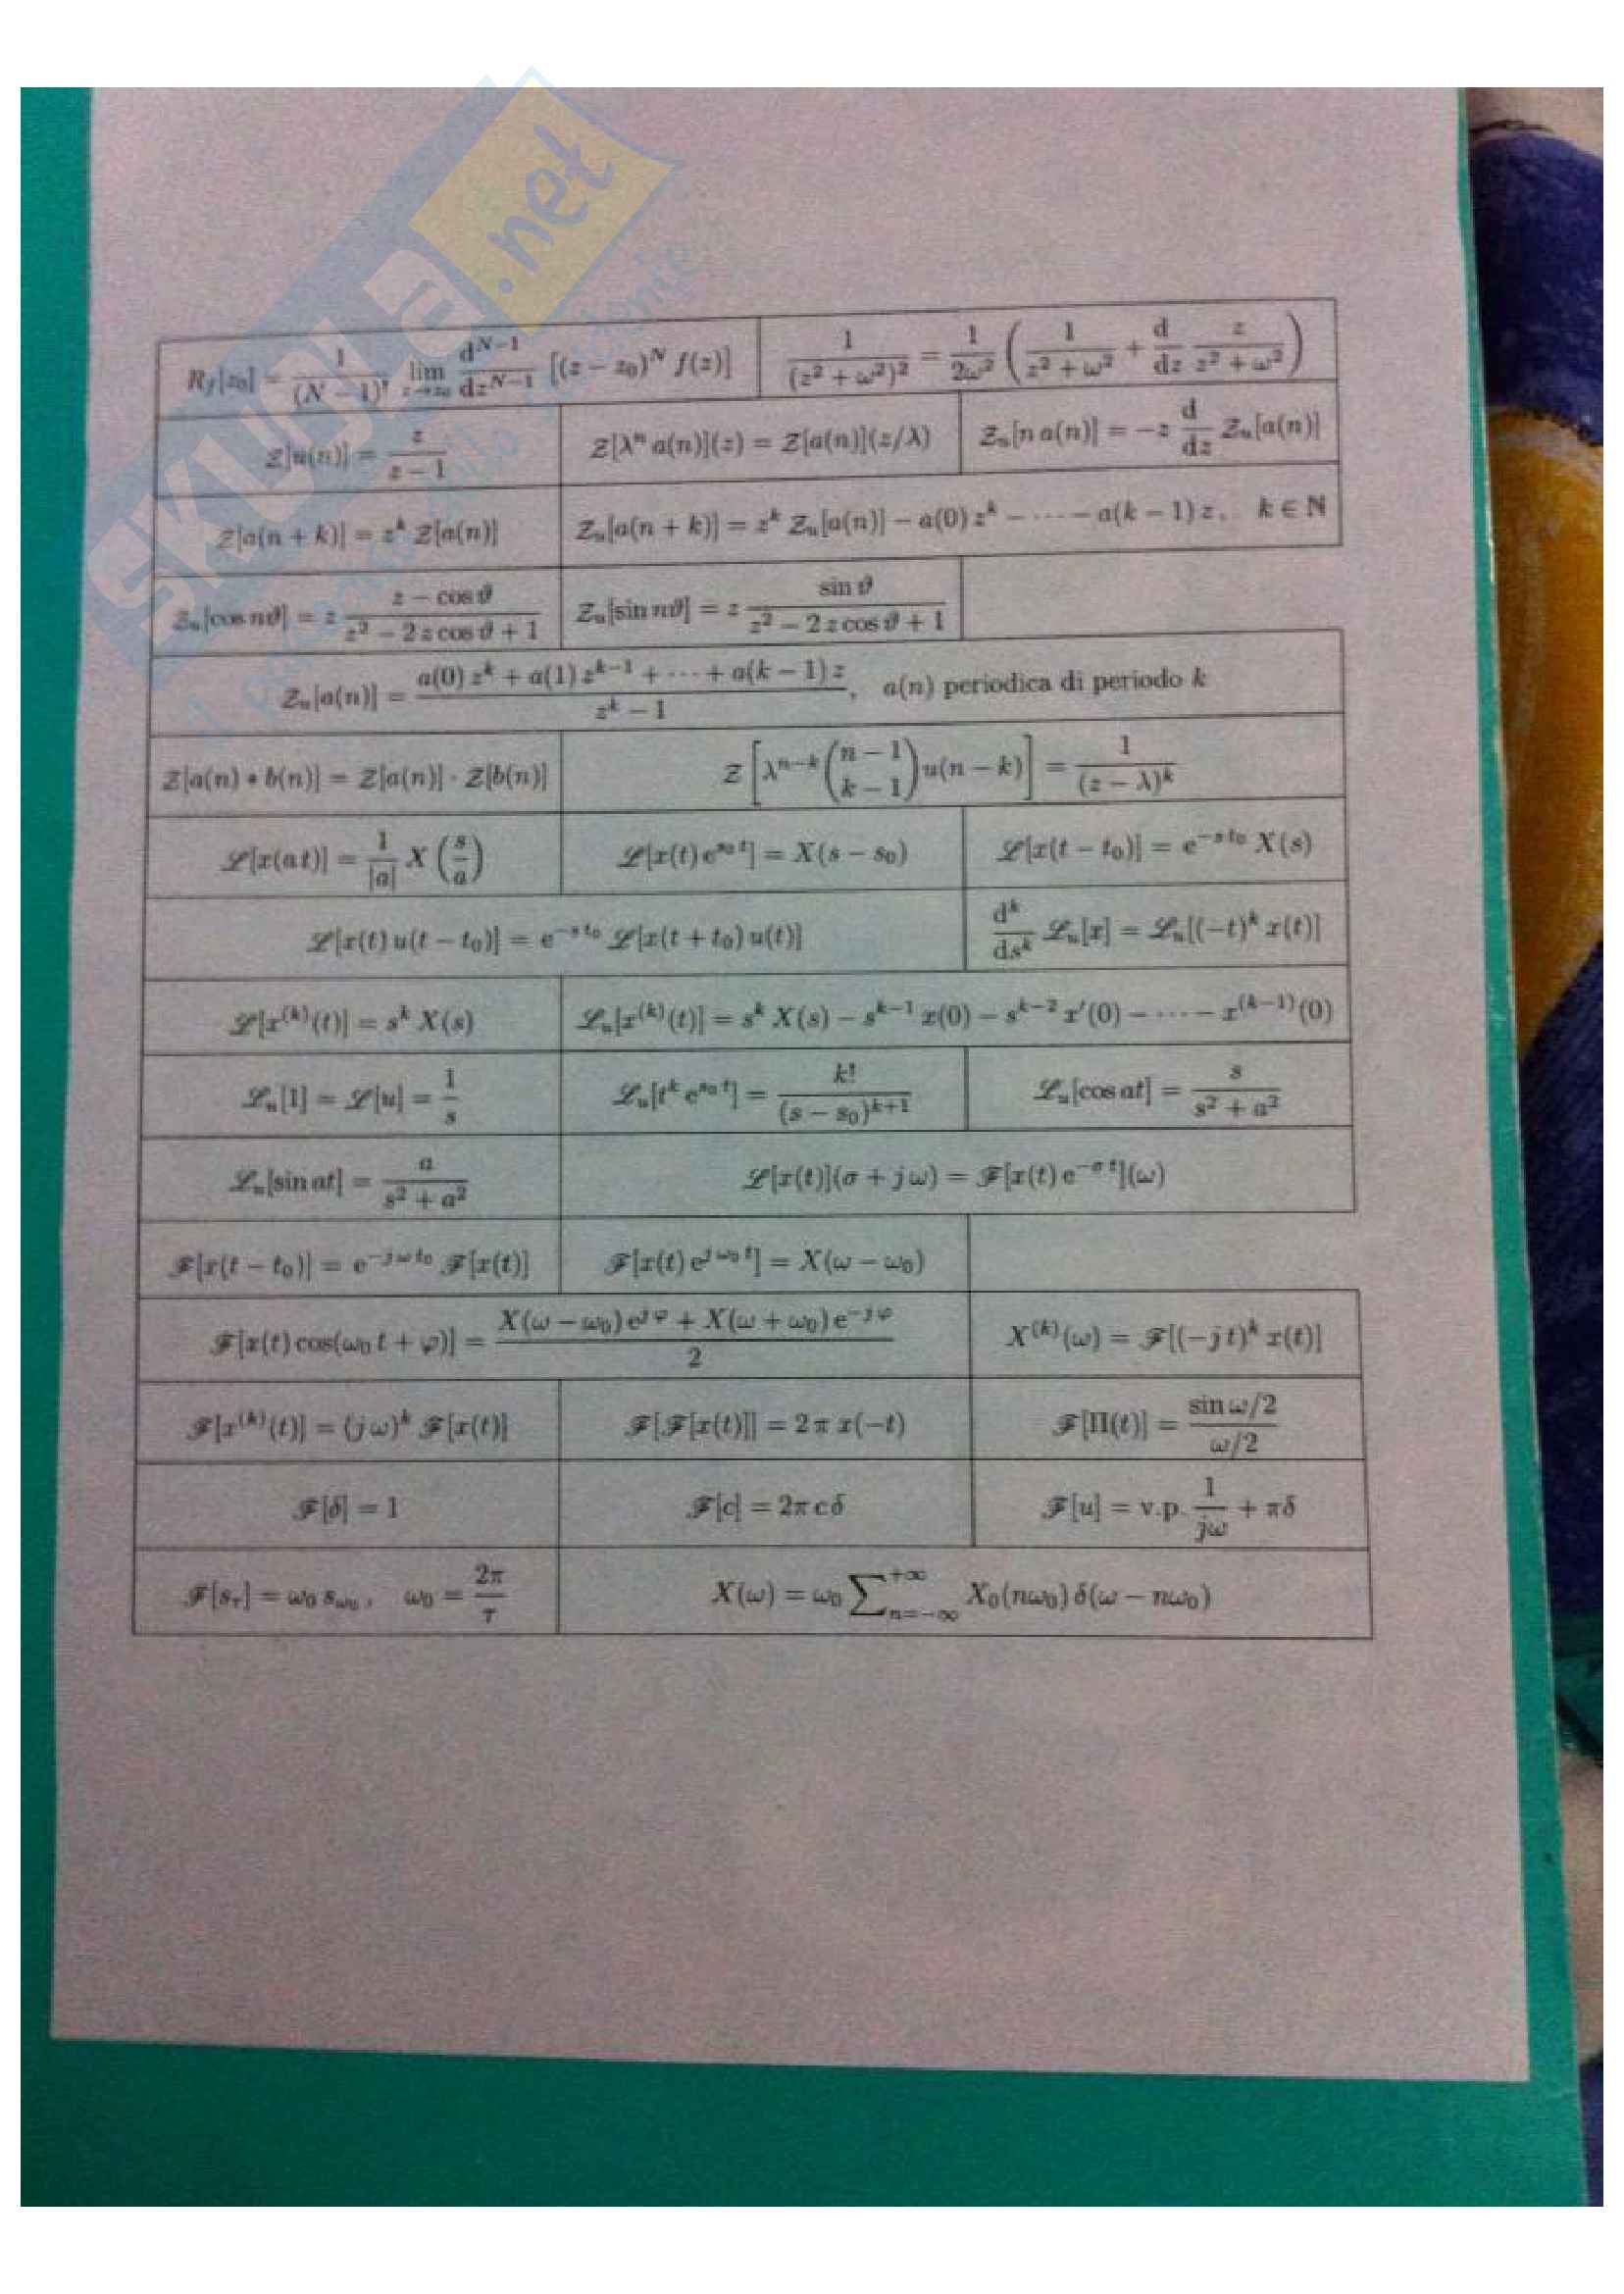 SKUOLA.net
R_f[z_0] = \frac{1}{(N-1)!} \lim_{z \to z_0} \frac{d^{N-1}}{dz^{N-1}} [(z - z_0)^N f(z)]
\frac{1}{(z^2 + ω^2)^2} = \frac{1}{2ω^2} ( \frac{1}{z^2 + ω^2} + \frac{d}{dz} \frac{z}{z^2 + ω^2} )
Z[u(n)] = \frac{z}{z - 1}
Z[λ^n a(n)](z) = Z[a(n)](z/λ)
Z_u[n a(n)] = -z \frac{d}{dz} Z_u[a(n)]
Z[a(n + k)] = z^k Z[a(n)]
Z_u[a(n + k)] = z^k Z_u[a(n)] − a(0) z^k − ⋯ − a(k − 1) z , k ∈ ℕ
Z_u[cos nϑ] = z \frac{z − cos ϑ}{z^2 − 2 z cos ϑ + 1}
Z_u[sin nϑ] = z \frac{sin ϑ}{z^2 − 2 z cos ϑ + 1}
Z_u[a(n)] = \frac{a(0) z^k + a(1) z^{k−1} + ⋯ + a(k − 1) z}{z^k − 1}, a(n) periodica di periodo k
Z[a(n) ∗ b(n)] = Z[a(n)] · Z[b(n)]
Z [ λ^{n−k} \binom{n − 1}{k − 1} u(n − k) ] = \frac{1}{(z − λ)^k}
ℒ[x(a t)] = \frac{1}{|a|} X ( \frac{s}{a} )
ℒ[x(t) e^{s_0 t}] = X(s − s_0)
ℒ[x(t − t_0)] = e^{−s t_0} X(s)
ℒ[x(t) u(t − t_0)] = e^{−s t_0} ℒ[x(t + t_0) u(t)]
\frac{d^k}{ds^k} ℒ_u[x] = ℒ_u[(−t)^k x(t)]
ℒ[x^{(k)}(t)] = s^k X(s)
ℒ_u[x^{(k)}(t)] = s^k X(s) − s^{k−1} x(0) − s^{k−2} x′(0) − ⋯ − x^{(k−1)}(0)
ℒ_u[1] = ℒ[u] = \frac{1}{s}
ℒ_u[t^k e^{s_0 t}] = \frac{k!}{(s − s_0)^{k+1}}
ℒ_u[cos at] = \frac{s}{s^2 + a^2}
ℒ_u[sin at] = \frac{a}{s^2 + a^2}
ℒ[x(t)](σ + j ω) = ℱ[x(t) e^{−σ t}](ω)
ℱ[x(t − t_0)] = e^{−j ω t_0} ℱ[x(t)]
ℱ[x(t) e^{j ω_0 t}] = X(ω − ω_0)
ℱ[x(t) cos(ω_0 t + φ)] = \frac{X(ω − ω_0) e^{j φ} + X(ω + ω_0) e^{−j φ}}{2}
X^{(k)}(ω) = ℱ[(−j t)^k x(t)]
ℱ[x^{(k)}(t)] = (j ω)^k ℱ[x(t)]
ℱ[ℱ[x(t)]] = 2 π x(−t)
ℱ[Π(t)] = \frac{sin ω/2}{ω/2}
ℱ[δ] = 1
ℱ[c] = 2π c δ
ℱ[u] = v.p. \frac{1}{jω} + πδ
ℱ[s_τ] = ω_0 s_{ω_0} , ω_0 = \frac{2π}{τ}
X(ω) = ω_0 \sum_{n=−∞}^{+∞} X_0(nω_0) δ(ω − nω_0)